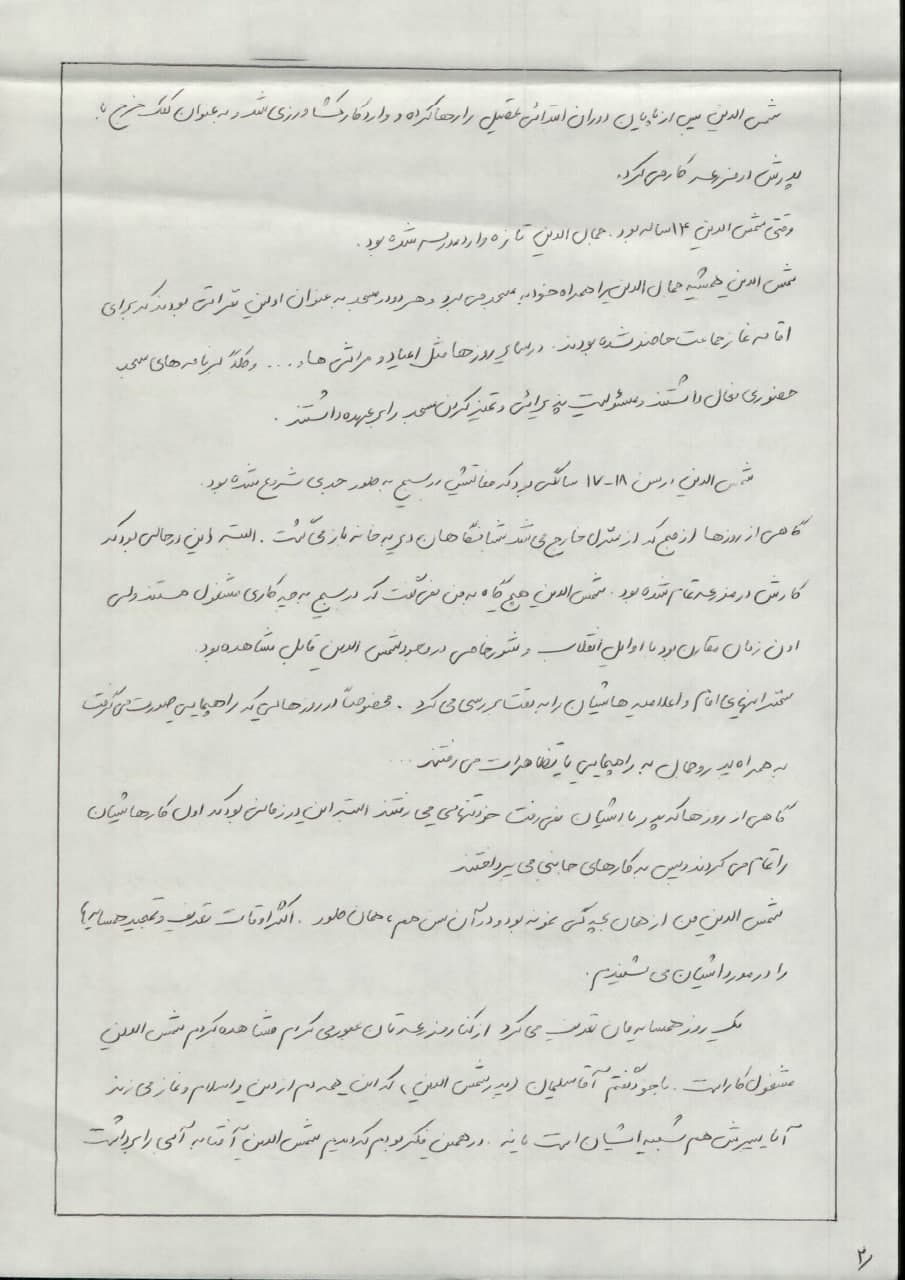 شمس الدین پس از پایان دوران ابتدائی تحصیل را رها کرده و وارد کار کشاورزی شد و به عنوان کمک خرج با
پدرش در مزرعه کار می کرد.
وقتی شمس الدین ۱۴ ساله بود. جمال الدین تازه وارد مدرسه شده بود.
شمس الدین همیشه جمال الدین را همراه خود به مسجد می برد و هر دو در مسجد به عنوان اولین نفراتی بودند که برای
اقامه نماز جماعت حاضر شده بودند. در سایر روزها مثل اعیاد و مراسم ها و ... و کلاً برنامه های مسجد
حضوری فعال داشتند و مسئولیت پذیرائی و تمیز کردن مسجد را بر عهده داشتند.
شمس الدین در سن ۱۸-۱۷ سالگی بود که فعالیتش در بسیج به طور جدی شروع شده بود.
گاهی از روزها از صبح که از منزل خارج می شد شبانگاهان دیر به خانه باز می گشت. البته این در حالی بود که
کارش در مزرعه تمام شده بود. شمس الدین هیچ گاه به من نمی گفت که در بسیج به چه کاری مشغول هستند ولی
اون زمان مقارن بود با اوایل انقلاب و شور خاصی در وجود شمس الدین قابل مشاهده بود.
سخنرانیهای امام و اعلامیه هاشیان را به دقت بررسی می کرد. مخصوصاً در روزهایی که راهپیمایی صورت می گرفت
به همراه پدر و جمال به راهپیمایی یا تظاهرات می رفتند...
گاهی از روزها که پدر با ایشان نمی رفت خود تنهایی می رفتند البته این در زمانی بود که اول کارهاشیان
را تمام می کردند و سپس به کارهای جانبی می پرداختند
شمس الدین من از همان بچه گی نمونه بود و در آن سن هم، همان طور. اکثر اوقات تعریف و تمجید همسایه ها
را در مورد ایشان می شنیدم.
یک روز همسایه مان تعریف می کرد از کنار مزرعه تان عبور می کردم مشاهده کردم شمس الدین
مشغول کار است. با خود گفتم آقا سلیمان (پدر شمس الدین)، که این همه دم از دین و اسلام و نماز می زند
آیا پسرش هم شبیه ایشان است یا نه. در همین فکر بودم که دیدم شمس الدین آفتابه آبی را برداشت
۲